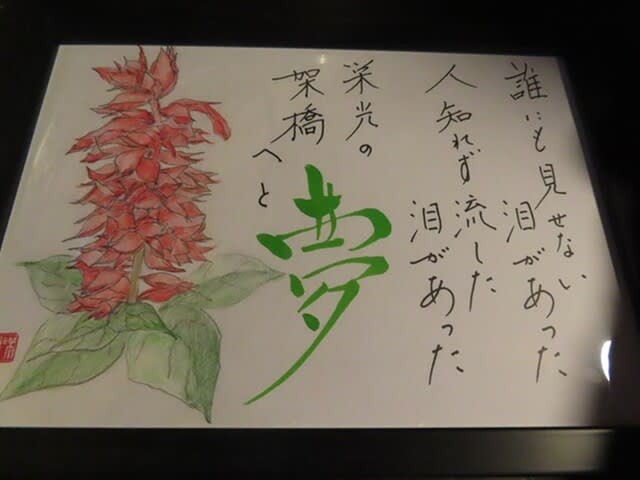 誰にも見せない
泪があった
人知れず流した
泪があった
栄光の
架橋へと
夢